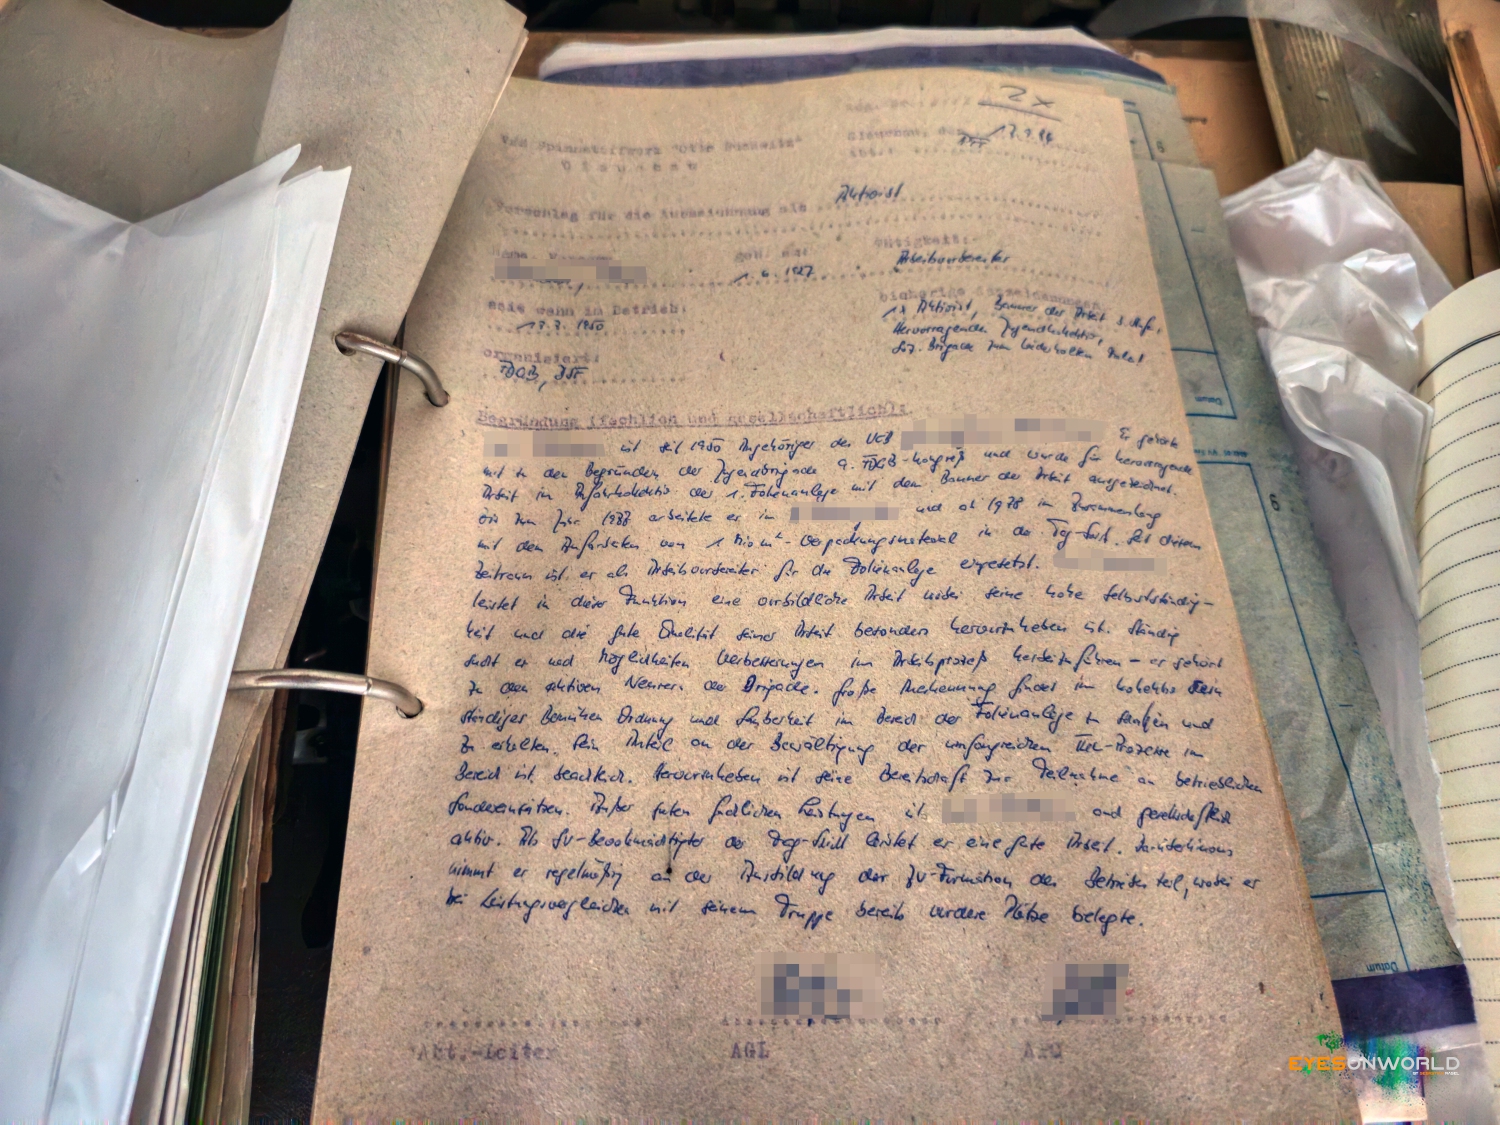 2x
VEB Spinnstoffwerk "Otto Buchwitz"
Glauchau
Glauchau, den 17.2.86
Vorschlag für die Auszeichnung als Aktivist
Name, Vorname geb. am: Tätigkeit:
1.6.1927 Arbeitsvorbereiter
seit wann im Betrieb: bisherige Auszeichnungen
13.7.1950 1x Aktivist, Banner der Arbeit
Hervorragendes Jugendkollektiv,
organisiert: Soz. Brigade zum wiederholten Male
FDGB, DSF
Begründung (fachlich und gesellschaftlich):
ist seit 1950 Angehöriger des VEB Er gehörte
mit zu den Begründern der Jugendbrigade 9. FDGB-Kongreß und wurde für hervorragende
Arbeit im Anfahrkollektiv der 1. Folienanlage mit dem Banner der Arbeit ausgezeichnet.
Bis zum Jahr arbeitete er im und ab 1978 im Zusammenhang
mit dem Anfahren von 1 Mio m²-Verpackungsmaterial in der Tag-Schicht. Seit diesem
Zeitraum ist er als Arbeitsvorbereiter für die Folienanlage eingesetzt.
leistet in dieser Funktion eine vorbildliche Arbeit wobei seine hohe Selbstständig-
keit und die gute Qualität seiner Arbeit besonders hervorzuheben ist. Ständig
sucht er nach Möglichkeiten Verbesserungen im Arbeitsprozeß herbeizuführen - er gehört
zu den aktiven Neuerern der Brigade. Große Anerkennung findet im Kollektiv sein
ständiges Bemühen Ordnung und Sauberkeit im Bereich der Folienanlage zu schaffen und
zu erhalten. Sein Anteil an der Bewältigung der umfangreichen TUL-Prozesse im
Bereich ist beachtlich. Hervorzuheben ist seine Bereitschaft zur Teilnahme an betrieblichen
Sondereinsätzen. Außer guten fachlichen Leistungen ist und gesellschaftlich
aktiv. Als SV-Bevollmächtigter der Tag-Schicht leistet er eine gute Arbeit. Darüberhinaus
nimmt er regelmäßig an der Ausbildung der ZV-Formation des Betriebes teil, wobei er
bei Leistungsvergleichen mit seinem Truppe bereits vordere Plätze belegte.
Abt.-Leiter AGL
6
6
Datum
Datum
EYESONWORLD